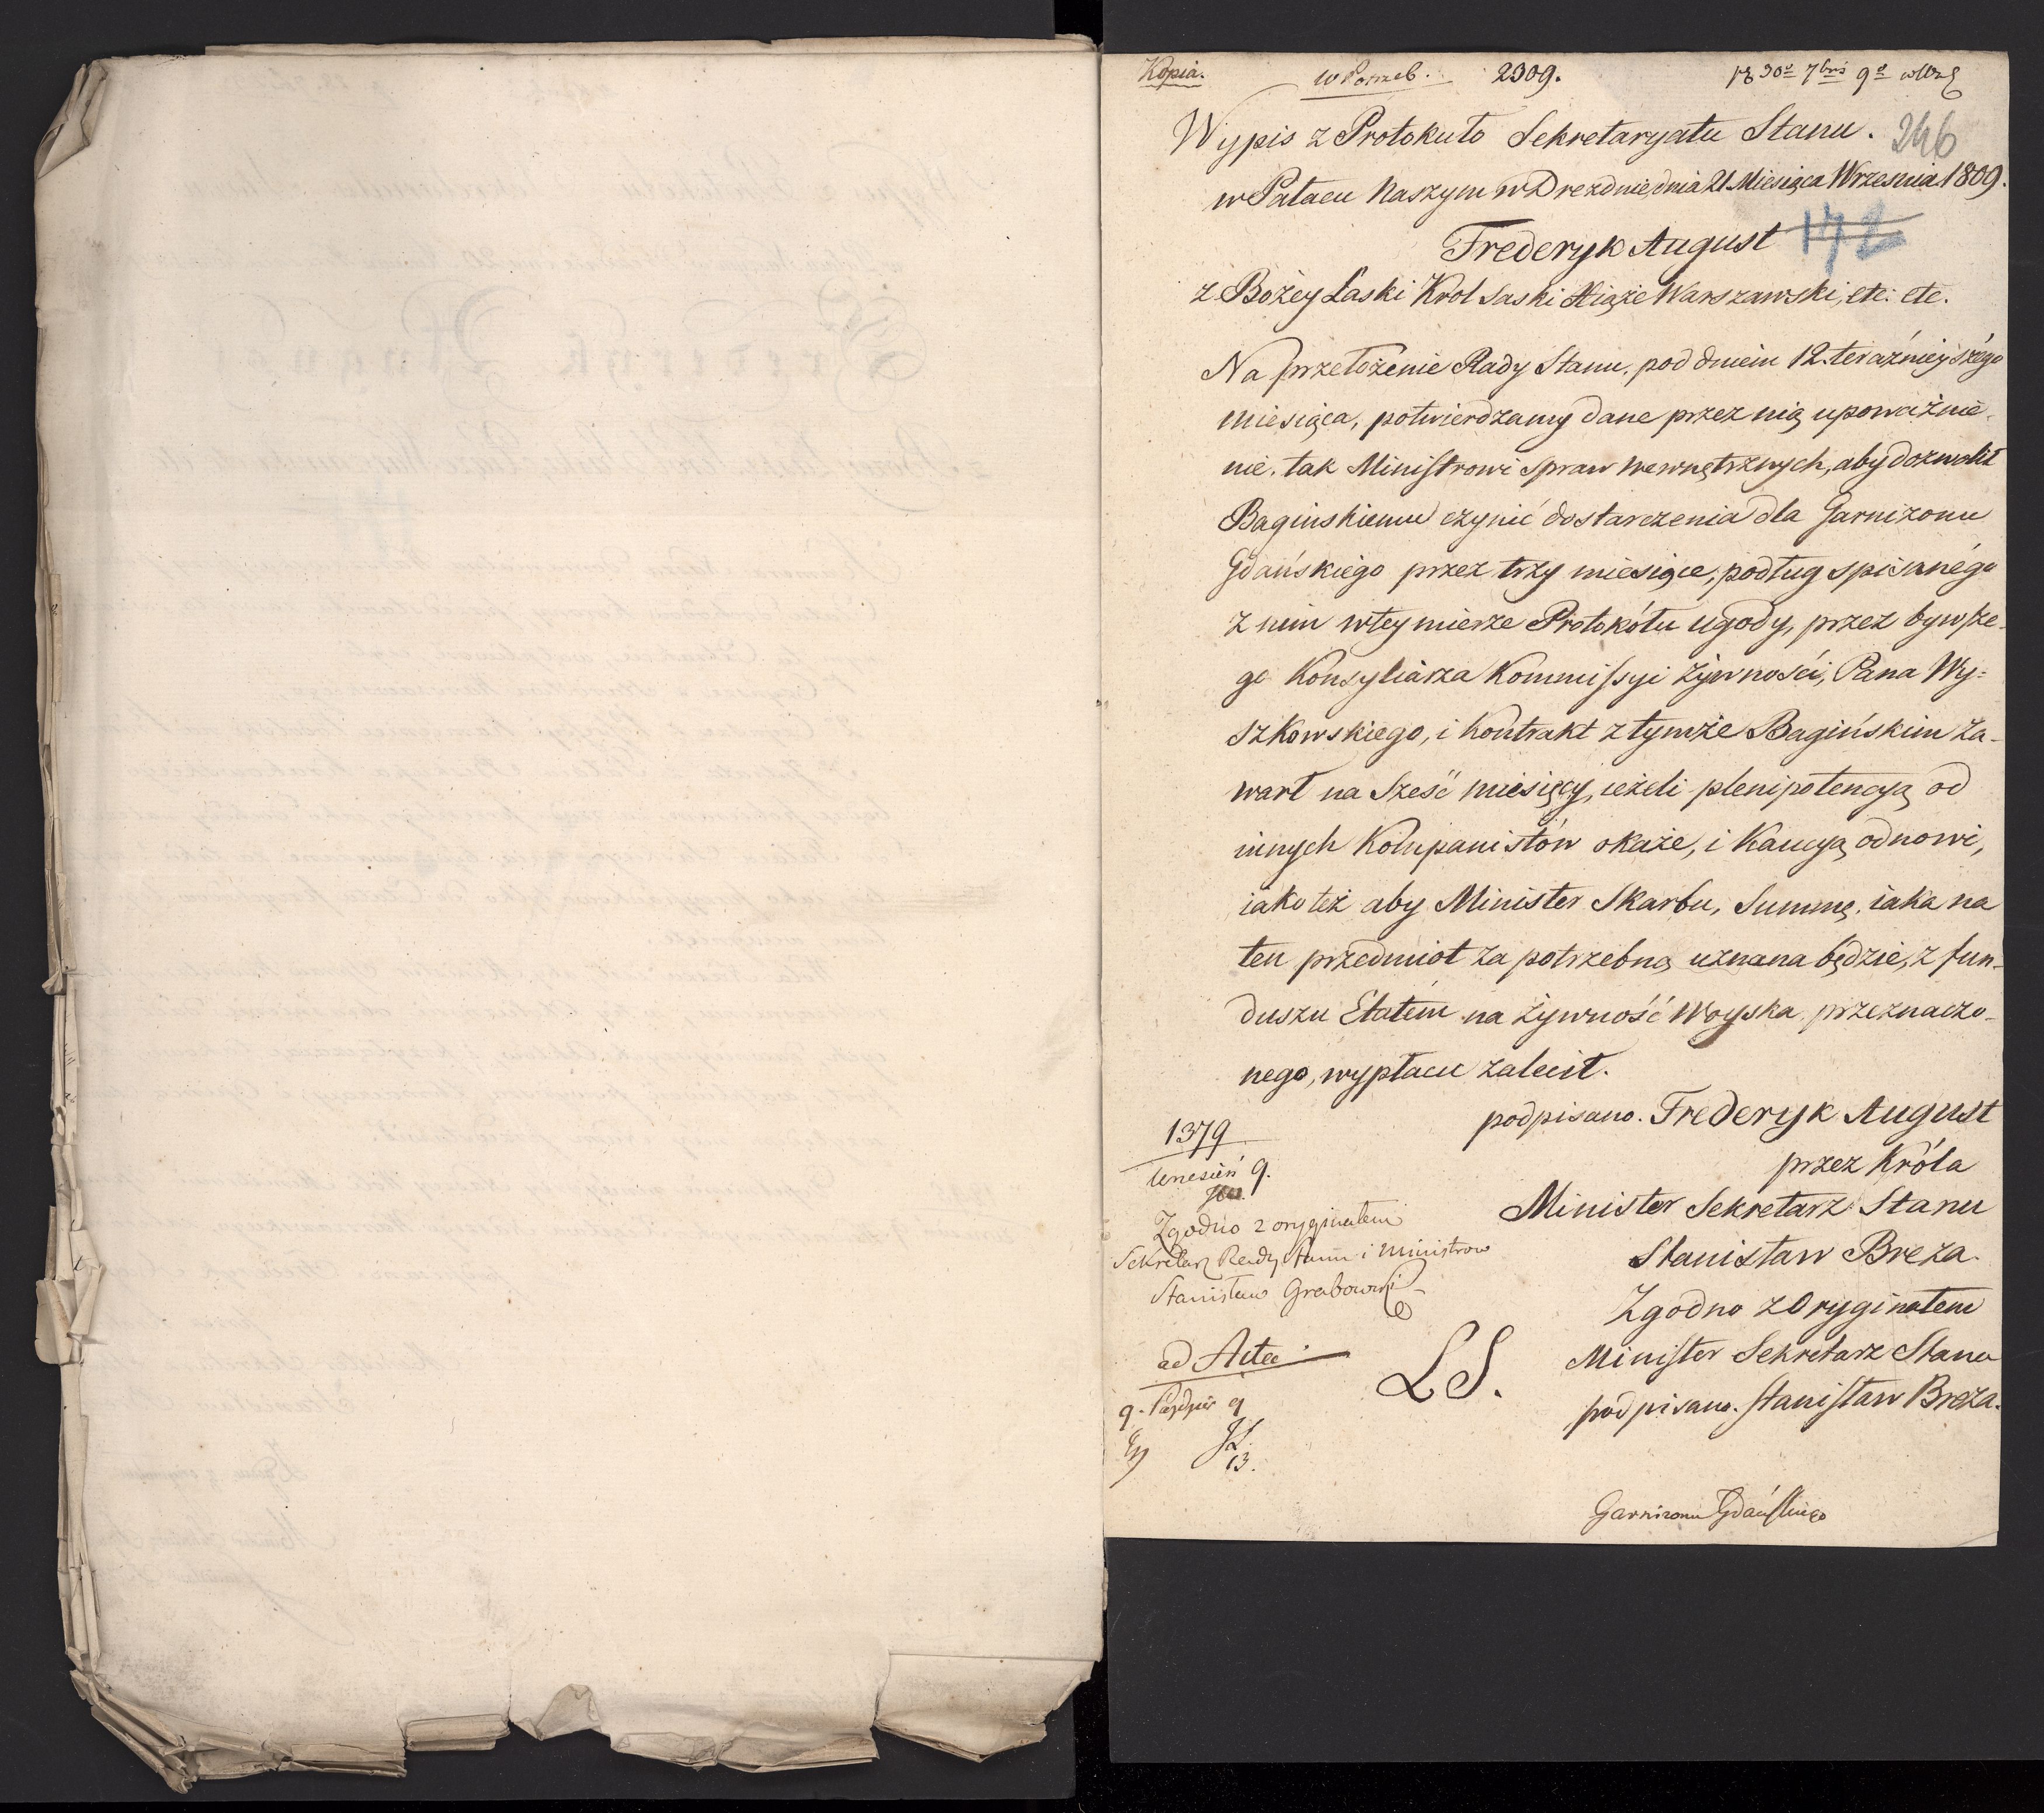 Kopia. w Potrzeb. 2309. 30 7bris 9
Wypis z Protokułu Sekretaryatu Stanu. 246
w Pałacu Naszym w Dreźdnie, dnia 21 Miesiąca Wrzesnia 1809.
172
Frederyk August
z Bożey Łaski Krol Saski Xiąże Warszawski, etc: etc.
Na przełożenie Rady Stanu, pod dniem 12. teraźnieyszégo
miesiąca, potwierdzamy dane przez nią upoważnie-
nie, tak Ministrowi Spraw Wewnętrznych, aby dozwolił
Baginskiemu czynić dostarczenia dla Garnizonu
Gdańskiego przez trzy miesiące, podług spisanégo
z nim w tey mierze Protokółu ugody, przez bywsze-
go Konsyliarza Kommissyi Żywności, Pana Wy=
szkowskiego, i Kontrakt z tymże Bagińskim za-
warł na sześć miesięcy, ieżeli plenipotencyą od
innych Kompanistów okaże, i Kaucyą odnowi,
iako też aby Minister Skarbu, Summę, iaka na
ten przedmiot za potrzebną uznana będzie, z fun-
duszu Etatem na żywność Woyska przeznaczo-
nego, wypłacić zalecił.
podpisano. Frederyk August
przez Króla
Minister Sekretarz Stanu
Stanisław Breza.
Zgodno z Oryginałem
Minister Sekretarz Stanu
podpisano. Stanisław Breza.
1379
Wrzesień 9.
Zgodno z oryginałem
Sekretarz Rady Stanu i Ministrow
Stanisław Grabowski
ad Acta
L S.
9. Paździer 9
13.
Garnizonu Gdańskiego